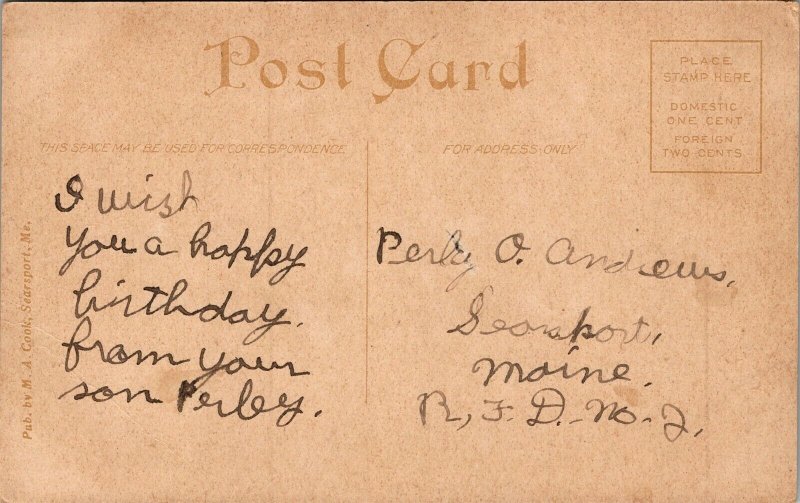 Post Card
PLACE
STAMP HERE
DOMESTIC
ONE CENT
FOREIGN
TWO CENTS
THIS SPACE MAY BE USED FOR CORRESPONDENCE
FOR ADDRESS ONLY
Pub. by M. A. Cook, Searsport, Me.
I wish
you a happy
birthday.
from your
son Perley.
Perly O. Andrews,
Searsport,
Maine.
R, F. D.